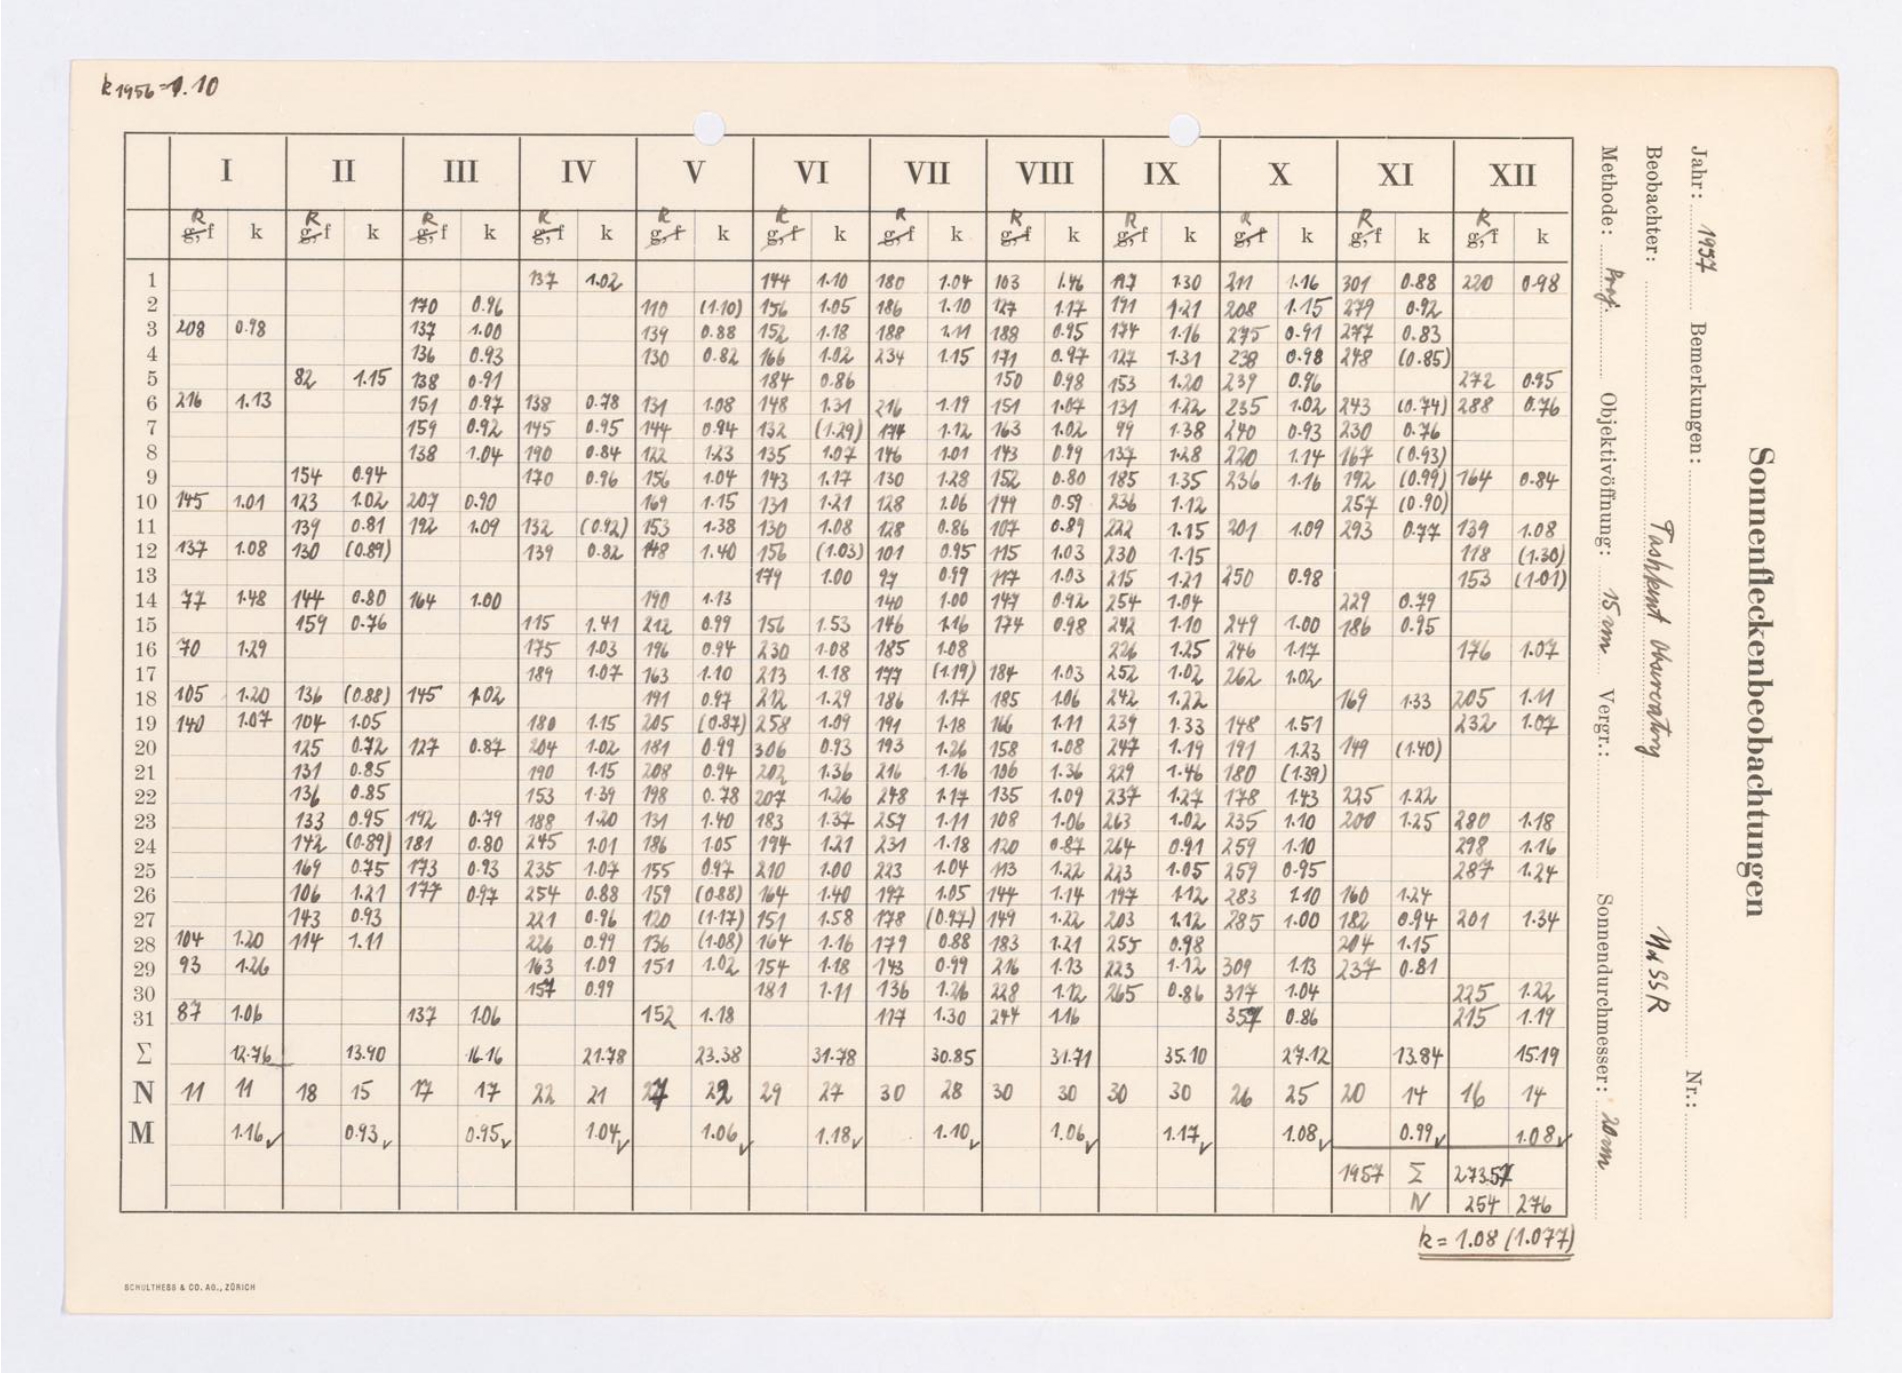 k 1956 = 1.10
I II III IV V VI VII VIII IX X XI XII
R g, f k R g, f k R g, f k R g, f k R g, f k R g, f k R g, f k R g, f k R g, f k R g, f k R g, f k R g, f k
1 137 1.02 144 1.10 180 1.04 103 1.46 1.30 211 1.16 301 0.88 220 0.98
2 170 0.96 110 (1.10) 156 1.05 186 1.10 127 1.17 191 1.21 208 1.15 279 0.92
3 208 0.98 137 1.00 139 0.88 152 1.18 188 1.11 188 0.95 174 1.16 275 0.91 277 0.83
4 136 0.93 130 0.82 166 1.02 234 1.15 171 0.97 127 1.31 238 0.98 248 (0.85)
5 82 1.15 138 0.91 184 0.86 150 0.98 153 1.20 239 0.96 272 0.95
6 216 1.13 151 0.97 138 0.78 131 1.08 148 1.31 216 1.19 151 1.07 131 1.22 235 1.02 243 (0.74) 288 0.76
7 159 0.92 145 0.95 144 0.94 132 (1.29) 174 1.12 163 1.02 99 1.38 240 0.93 230 0.76
8 138 1.04 190 0.84 122 1.23 135 1.07 146 1.01 143 0.99 137 1.28 220 1.14 167 (0.93)
9 154 0.94 170 0.96 156 1.04 143 1.17 130 1.28 152 0.80 185 1.35 236 1.16 192 (0.99) 164 0.84
10 145 1.01 123 1.02 207 0.90 169 1.15 131 1.21 128 1.06 149 0.59 236 1.12 257 (0.90)
11 139 0.81 192 1.09 132 (0.92) 153 1.38 130 1.08 128 0.86 107 0.89 222 1.15 201 1.09 293 0.77 139 1.08
12 137 1.08 130 (0.89) 139 0.82 148 1.40 156 (1.03) 101 0.95 115 1.03 230 1.15 118 (1.30)
13 179 1.00 97 0.99 117 1.03 215 1.21 250 0.98 153 (1.01)
14 77 1.48 144 0.80 164 1.00 190 1.13 140 1.00 147 0.92 254 1.04 229 0.79
15 159 0.76 115 1.41 212 0.99 156 1.53 146 1.16 174 0.98 242 1.10 249 1.00 186 0.95
16 70 1.29 175 1.03 196 0.94 230 1.08 185 1.08 226 1.25 246 1.17 176 1.07
17 189 1.07 163 1.10 213 1.18 177 (1.19) 184 1.03 252 1.02 262 1.02
18 105 1.20 136 (0.88) 145 1.02 191 0.97 212 1.29 186 1.17 185 1.06 242 1.22 169 1.33 205 1.11
19 140 1.07 104 1.05 180 1.15 205 (0.87) 258 1.09 191 1.18 166 1.11 239 1.33 148 1.51 232 1.07
20 125 0.72 127 0.87 204 1.02 181 0.99 306 0.93 193 1.26 158 1.08 247 1.19 191 1.23 149 (1.40)
21 131 0.85 190 1.15 208 0.94 202 1.36 216 1.16 106 1.36 229 1.46 180 (1.39)
22 136 0.85 153 1.39 198 0.78 207 1.26 248 1.17 135 1.09 237 1.27 178 1.43 225 1.22
23 133 0.95 192 0.79 188 1.20 131 1.40 183 1.37 257 1.11 108 1.06 263 1.02 235 1.10 200 1.25 280 1.18
24 142 (0.89) 181 0.80 245 1.01 186 1.05 194 1.21 231 1.18 120 0.87 264 0.91 259 1.10 298 1.16
25 169 0.75 173 0.93 235 1.07 155 0.97 210 1.00 223 1.04 113 1.22 223 1.05 259 0.95 287 1.24
26 106 1.21 177 0.97 254 0.88 159 (0.88) 164 1.40 197 1.05 144 1.14 197 1.12 283 1.10 160 1.24
27 143 0.93 221 0.96 120 (1.17) 151 1.58 178 (0.97) 149 1.22 203 1.12 285 1.00 182 0.94 201 1.34
28 104 1.20 114 1.11 226 0.99 136 (1.08) 164 1.16 179 0.88 183 1.21 255 0.98 204 1.15
29 93 1.26 163 1.09 151 1.02 154 1.18 143 0.99 216 1.13 223 1.12 309 1.13 237 0.81
30 157 0.99 181 1.11 136 1.26 228 1.12 265 0.86 317 1.04 225 1.22
31 87 1.06 137 1.06 152 1.18 117 1.30 244 1.16 357 0.86 215 1.19
Σ 12.76 13.90 16.16 21.78 23.38 31.78 30.85 31.71 35.10 27.12 13.84 15.19
N 11 11 18 15 17 17 22 21 27 22 29 27 30 28 30 30 30 30 26 25 20 14 16 14
M 1.16✓ 0.93✓ 0.95✓ 1.04✓ 1.06✓ 1.18✓ 1.10✓ 1.06✓ 1.17✓ 1.08✓ 0.99✓ 1.08✓
1957 Σ 273.57
N 254 276
k = 1.08 (1.077)
SCHULTHESS & CO. AG., ZÜRICH
Sonnenfleckenbeobachtungen
Jahr: 1957 Bemerkungen: Nr.:
Beobachter: Tashkent Observatory UdSSR
Methode: Proj. Objektivöffnung: 15 cm Vergr.: Sonnendurchmesser: 20 cm